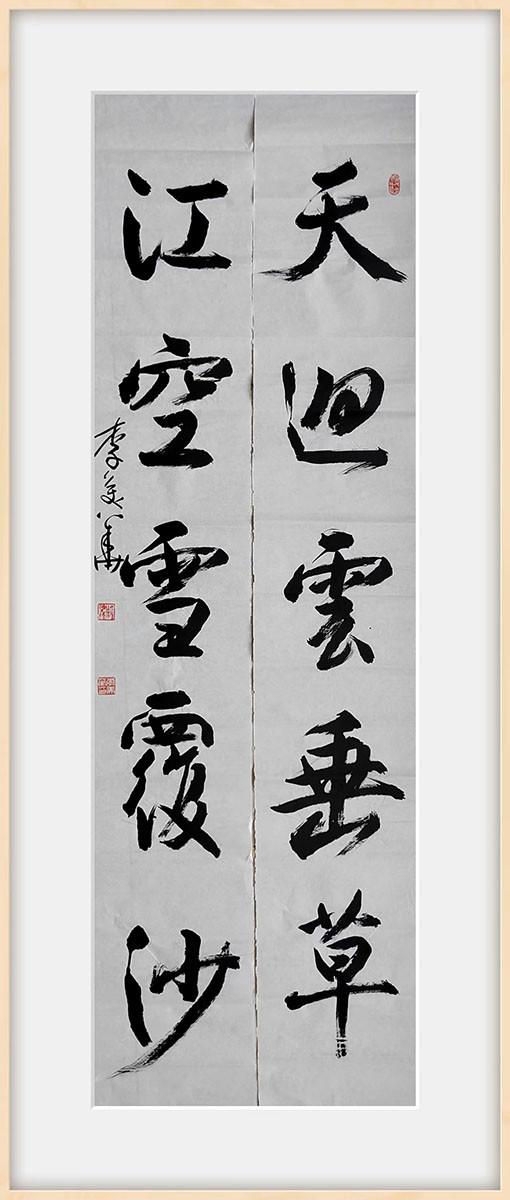 天迥雲垂草
江空雪覆沙
李美